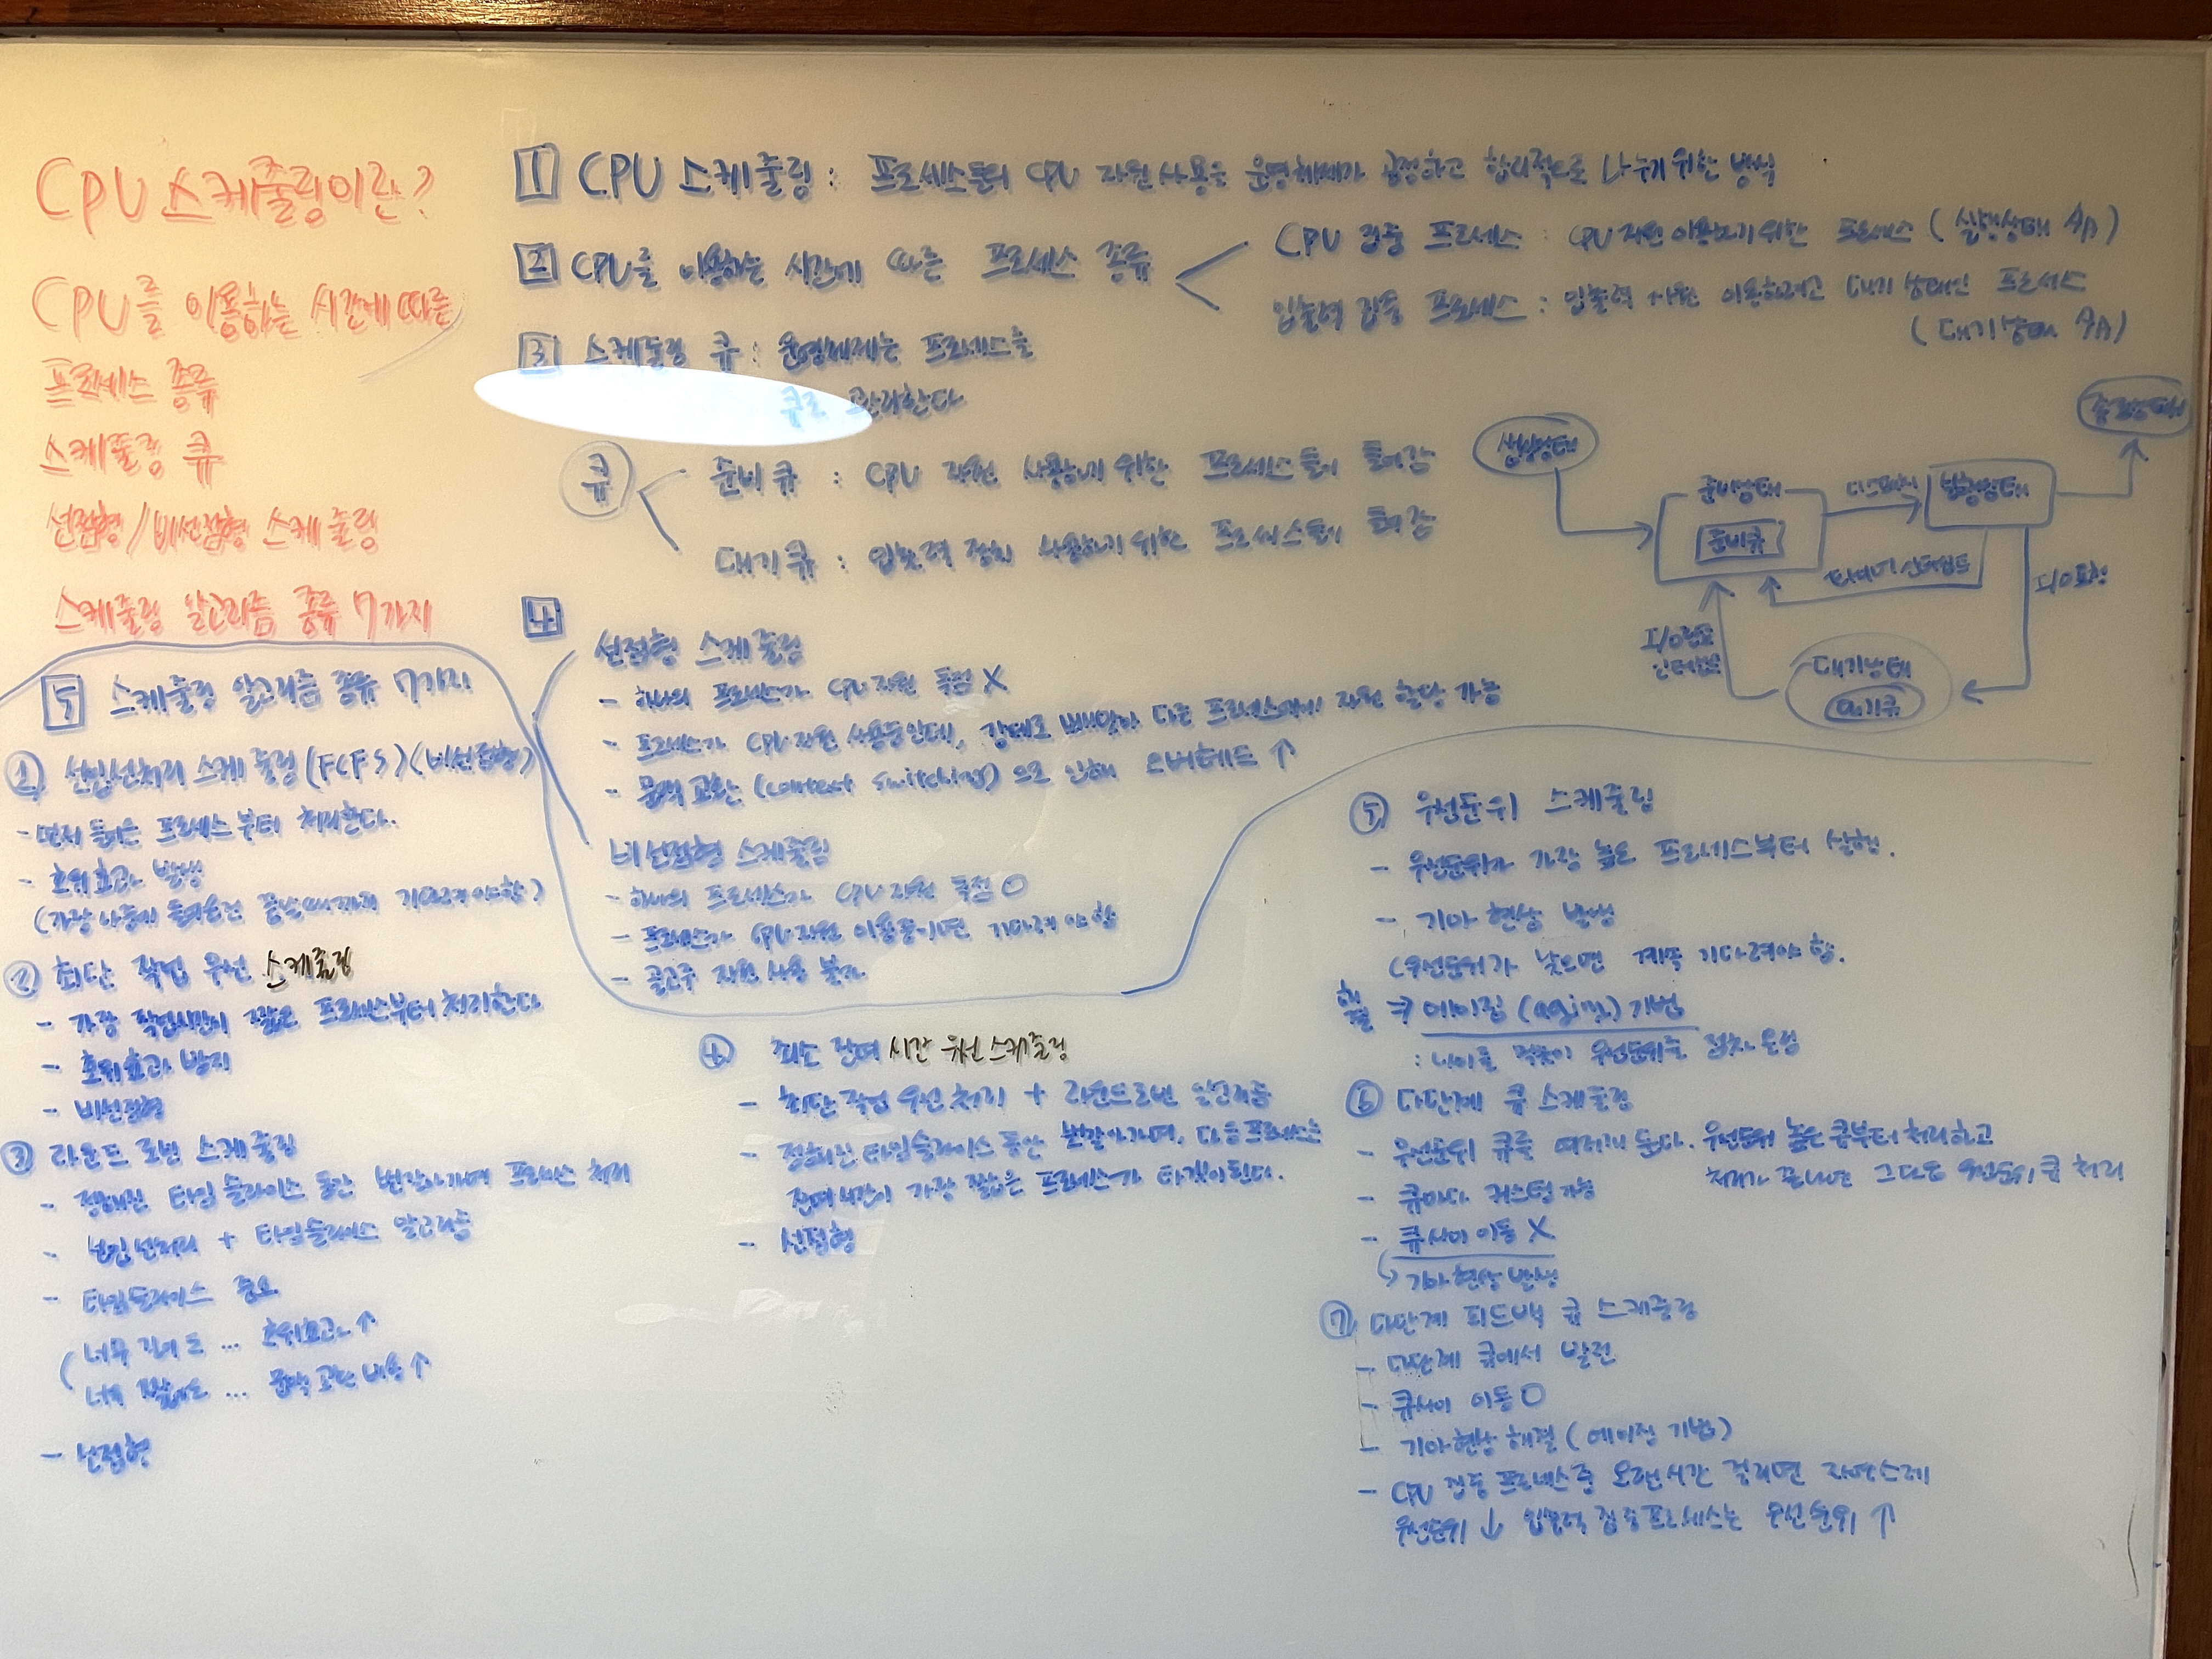 CPU 스케줄링이란?
CPU를 이용하는 시간에 따른
프로세스 종류
스케줄링 큐
선점형/비선점형 스케줄링
스케줄링 알고리즘 종류 7가지
1 CPU 스케줄링 : 프로세스들의 CPU 자원 사용을 운영체제가 공정하고 합리적으로 나누기 위한 방식
2 CPU를 이용하는 시간에 따른 프로세스 종류
CPU 집중 프로세스 : CPU 자원 이용하기 위한 프로세스 (실행상태 多)
입출력 집중 프로세스 : 입출력 자원 이용하려고 대기 상태인 프로세스
(대기상태 多)
3 스케줄링 큐 : 운영체제는 프로세스를
큐로 관리한다
큐
준비 큐 : CPU 자원 사용하기 위한 프로세스들이 들어감
대기 큐 : 입출력 장치 사용하기 위한 프로세스들이 들어감
생성상태
준비상태
준비큐
디스패치
실행상태
종료상태
타이머 인터럽트
I/O요청
I/O완료
인터럽트
대기상태
대기큐
4
선점형 스케줄링
- 하나의 프로세스가 CPU 자원 독점 X
- 프로세스가 CPU 자원 사용중인데, 강제로 빼앗아 다른 프로세스에게 자원 할당 가능
- 문맥 교환 (context switching)으로 인해 오버헤드 ↑
비선점형 스케줄링
- 하나의 프로세스가 CPU 자원 독점 O
- 프로세스가 CPU 자원 이용중이면 기다려야함
- 골고루 자원 사용 불가
5 스케줄링 알고리즘 종류 7가지
① 선입선처리 스케줄링(FCFS)(비선점형)
- 먼저 들어온 프로세스부터 처리한다.
- 호위효과 발생
(가장 나중에 들어온건 끝날때까지 기다려야함)
② 최단 작업 우선 스케줄링
- 가장 작업시간이 짧은 프로세스부터 처리한다
- 호위효과 방지
- 비선점형
③ 라운드 로빈 스케줄링
- 정해진 타임 슬라이스 동안 번갈아가며 프로세스 처리
- 선입선처리 + 타임슬라이스 알고리즘
- 타임슬라이스 중요
너무 길어도 ... 호위효과 ↑
너무 짧아도 ... 문맥 교환 비용 ↑
- 선점형
④ 최소 잔여 시간 우선 스케줄링
- 최단 작업 우선 처리 + 라운드로빈 알고리즘
- 정해진 타임슬라이스 동안 번갈아가며, 다음프로세스는
잔여시간이 가장 짧은 프로세스가 타겟이된다.
- 선점형
⑤ 우선순위 스케줄링
- 우선순위가 가장 높은 프로세스부터 실행.
- 기아 현상 발생
(우선순위가 낮으면 계속 기다려야 함.
→ 에이징 (aging) 기법
: 나이를 먹듯이 우선순위를 점차 올림
⑥ 다단계 큐 스케줄링
- 우선순위 큐를 여러개 둔다. 우선순위 높은 큐부터 처리하고
처리가 끝나면 그다음 우선순위 큐 처리
- 큐마다 커스텀 가능
- 큐사이 이동 X
↳ 기아현상 발생
⑦ 다단계 피드백 큐 스케줄링
- 다단계 큐에서 발전
- 큐사이 이동 O
- 기아현상 해결 (에이징 기법)
- CPU 집중 프로세스 중 오랜시간 걸리면 자연스레
우선순위 ↓ 입출력 집중프로세스는 우선순위 ↑